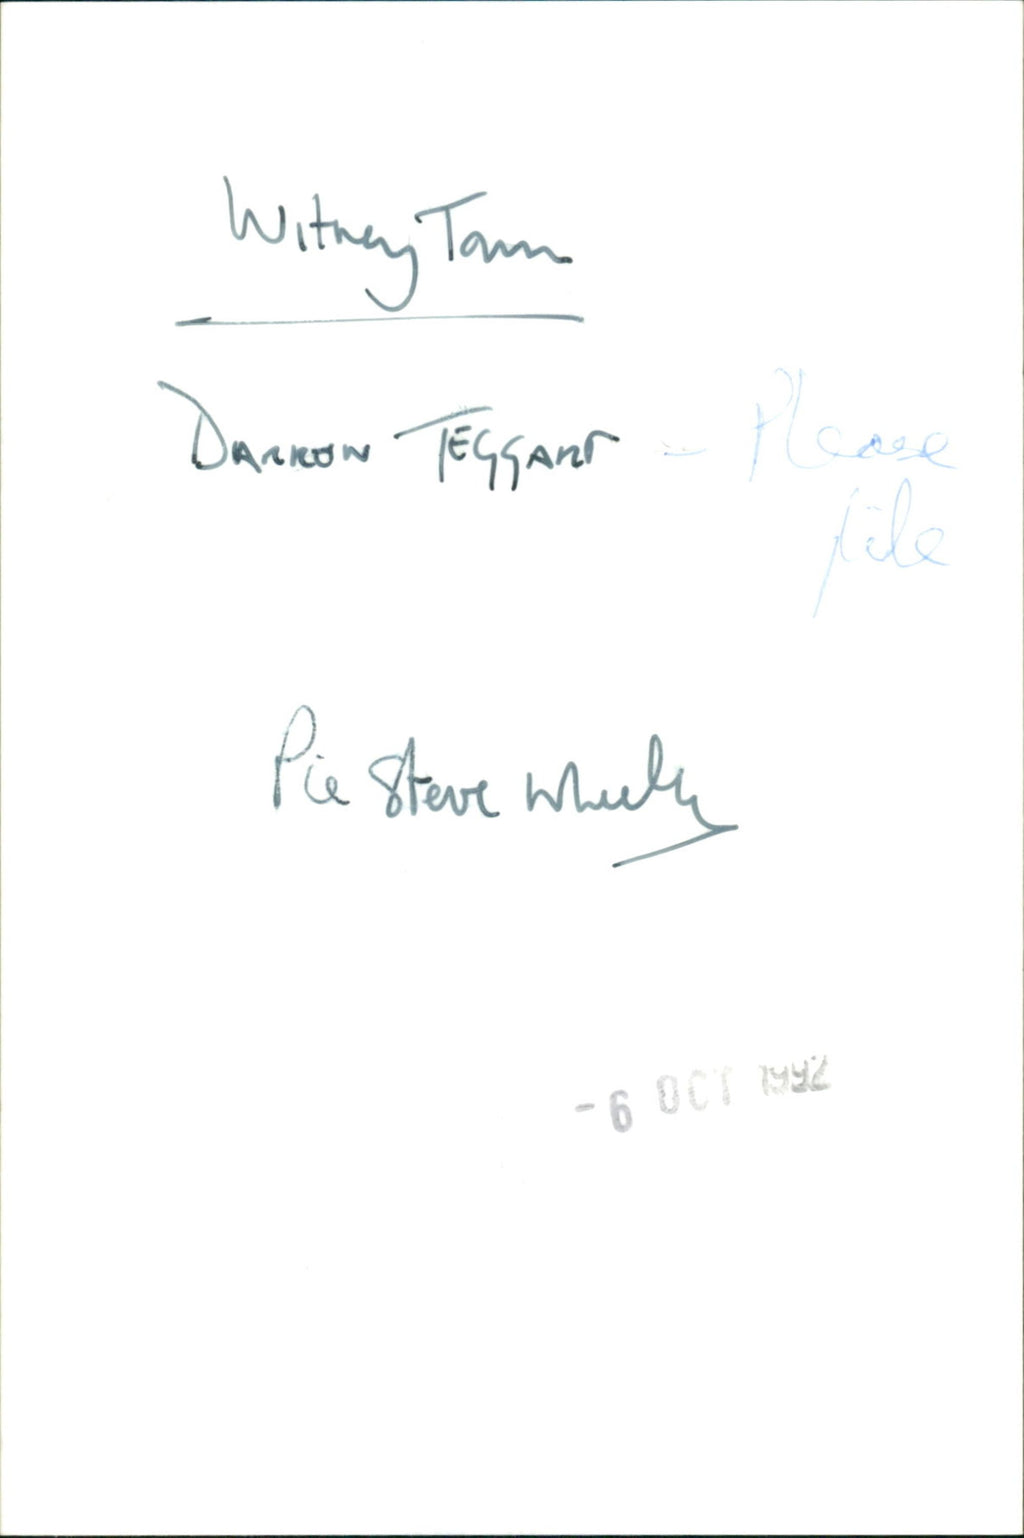 Witney Town
DARREN TEGGART - Please
file
Pic Steve Wheeler
- 6 OCT